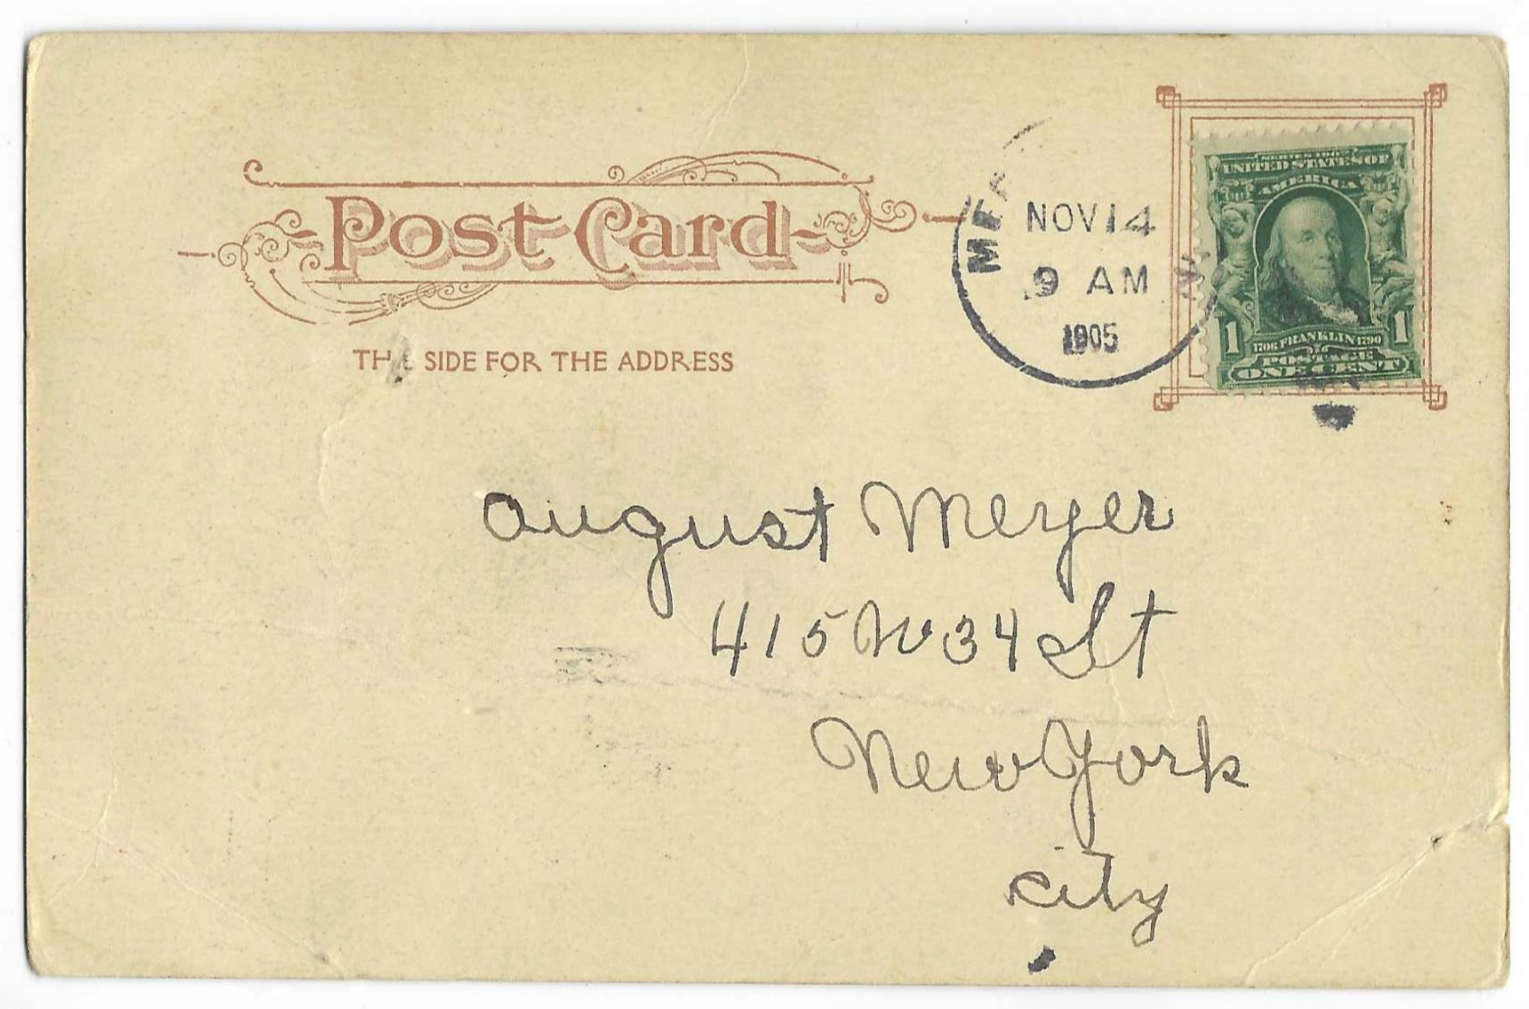 Post Card
THE SIDE FOR THE ADDRESS
NOV 14
9 AM
1905
SERIES 1902
UNITED STATES OF
AMERICA
1 1706 FRANKLIN 1790 1
POSTAGE
ONE CENT
August Meyer
415 W 34 St
New York
City